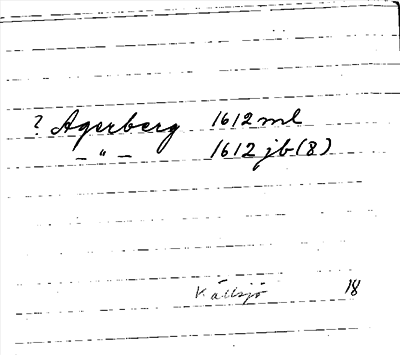 ? Agerberg 1612 ml
– " – 1612 jb (8)
Källsjö 18